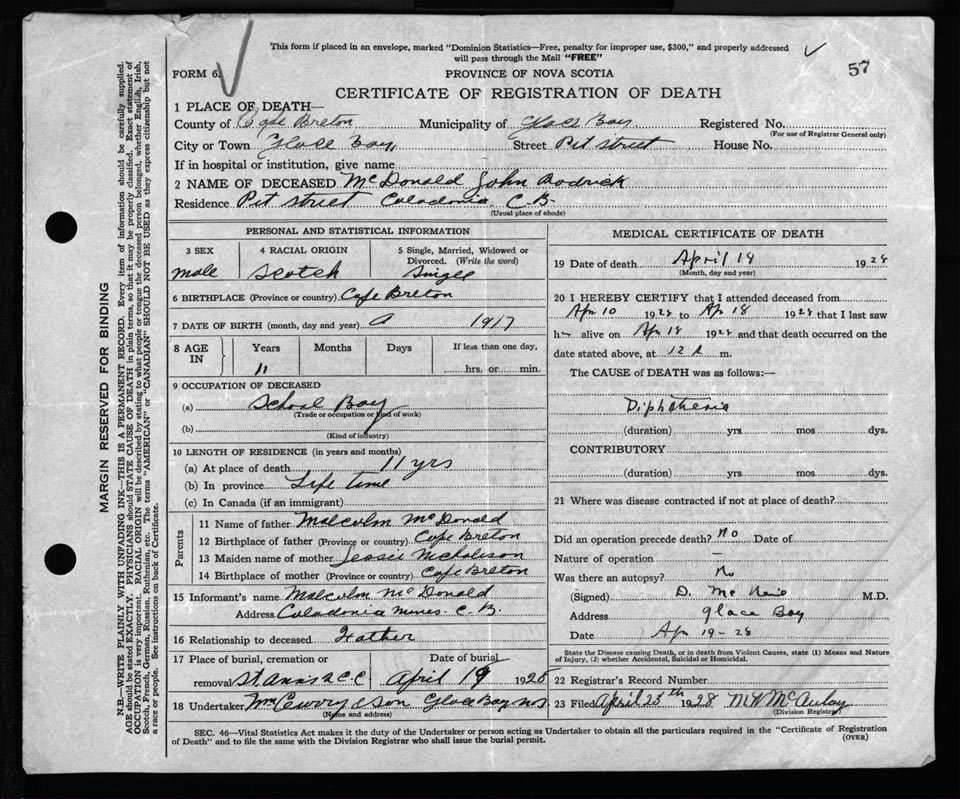 This form if placed in an envelope, marked "Dominion Statistics—Free, penalty for improper use, $300," and properly addressed
will pass through the Mail "FREE"
57
FORM 6. PROVINCE OF NOVA SCOTIA
CERTIFICATE OF REGISTRATION OF DEATH
1 PLACE OF DEATH—
County of Cape Breton Municipality of Glace Bay Registered No.
(For use of Registrar General only)
City or Town Glace Bay Street Pit Street House No.
If in hospital or institution, give name
2 NAME OF DECEASED McDonald John Rodrick
Residence Pit Street Caledonia C.B.
(Usual place of abode)
PERSONAL AND STATISTICAL INFORMATION
3 SEX 4 RACIAL ORIGIN 5 Single, Married, Widowed or
Divorced. (Write the word)
male Scotch Single
6 BIRTHPLACE (Province or country) Cape Breton
7 DATE OF BIRTH (month, day and year) A 1917
8 AGE IN Years Months Days If less than one day,
11 hrs. or min.
9 OCCUPATION OF DECEASED
(a) School Boy
(Trade or occupation or kind of work)
(b)
(Kind of industry)
10 LENGTH OF RESIDENCE (in years and months)
(a) At place of death 11 yrs
(b) In province Life time
(c) In Canada (if an immigrant)
Parents
11 Name of father Malcolm McDonald
12 Birthplace of father (Province or country) Cape Breton
13 Maiden name of mother Jessie Nicholson
14 Birthplace of mother (Province or country) Cape Breton
15 Informant's name Malcolm McDonald
Address Caladonia mines C.B.
16 Relationship to deceased Father
17 Place of burial, cremation or Date of burial
removal April 19 1928
18 Undertaker & Son Glace Bay N.S
(Name and address)
MEDICAL CERTIFICATE OF DEATH
19 Date of death April 18 1928
(Month, day and year)
20 I HEREBY CERTIFY that I attended deceased from
Apr 10 1928 to Apr 18 1928 that I last saw
h alive on Apr 18 1928 and that death occurred on the
date stated above, at 12 m.
The CAUSE of DEATH was as follows:—
Diphtheria
(duration) yrs mos dys.
CONTRIBUTORY
(duration) yrs mos dys.
21 Where was disease contracted if not at place of death?
Did an operation precede death? No Date of
Nature of operation —
Was there an autopsy? No
(Signed) D. M.D.
Address Glace Bay
Date Ap 19-28
State the Disease causing Death, or in death from Violent Causes, state (1) Means and Nature
of Injury, (2) whether Accidental, Suicidal or Homicidal.
22 Registrar's Record Number
23 Filed April 25th 1928 M McAulay
(Division Registrar)
SEC. 46—Vital Statistics Act makes it the duty of the Undertaker or person acting as Undertaker to obtain all the particulars required in the "Certificate of Registration
of Death" and to file the same with the Division Registrar who shall issue the burial permit. (OVER)
MARGIN RESERVED FOR BINDING
N.B.—WRITE PLAINLY WITH UNFADING INK—THIS IS A PERMANENT RECORD. Every item of information should be carefully supplied.
AGE should be stated EXACTLY. PHYSICIANS should STATE CAUSE OF DEATH in plain terms, so that it may be properly classified. Exact statement of
OCCUPATION is very important. RACIAL ORIGIN will be described by stating to what people or tongue the deceased person belonged, whether English, Irish,
Scotch, French, German, Russian, Ruthenian, etc. The terms "AMERICAN" or "CANADIAN" SHOULD NOT BE USED as they express citizenship but not
a race or people. See instructions on back of Certificate.